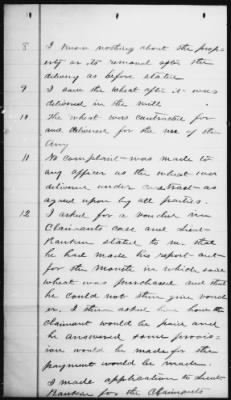 8 I know nothing about the prop-
erty or its removal after the
delivery as before stated
9 I saw the wheat after it was
delivered in the mill
10 The wheat was contracted for
and delivered for the use of the
Army
11 No complaint was made to
any officer as the wheat was
delivered under contract as
agreed upon by all parties.
12 I asked for a voucher in
Claimants case and Lieut
Rankin stated to me that
he had made his report out
for the month in which said
wheat was purchased and that
he could not then give vouch
er. I then asked him how the
claimant would be paid and
he answered some provis-
ion would be made for the
payment would be made.
I made application to Lieut
Rankin for the Claimants